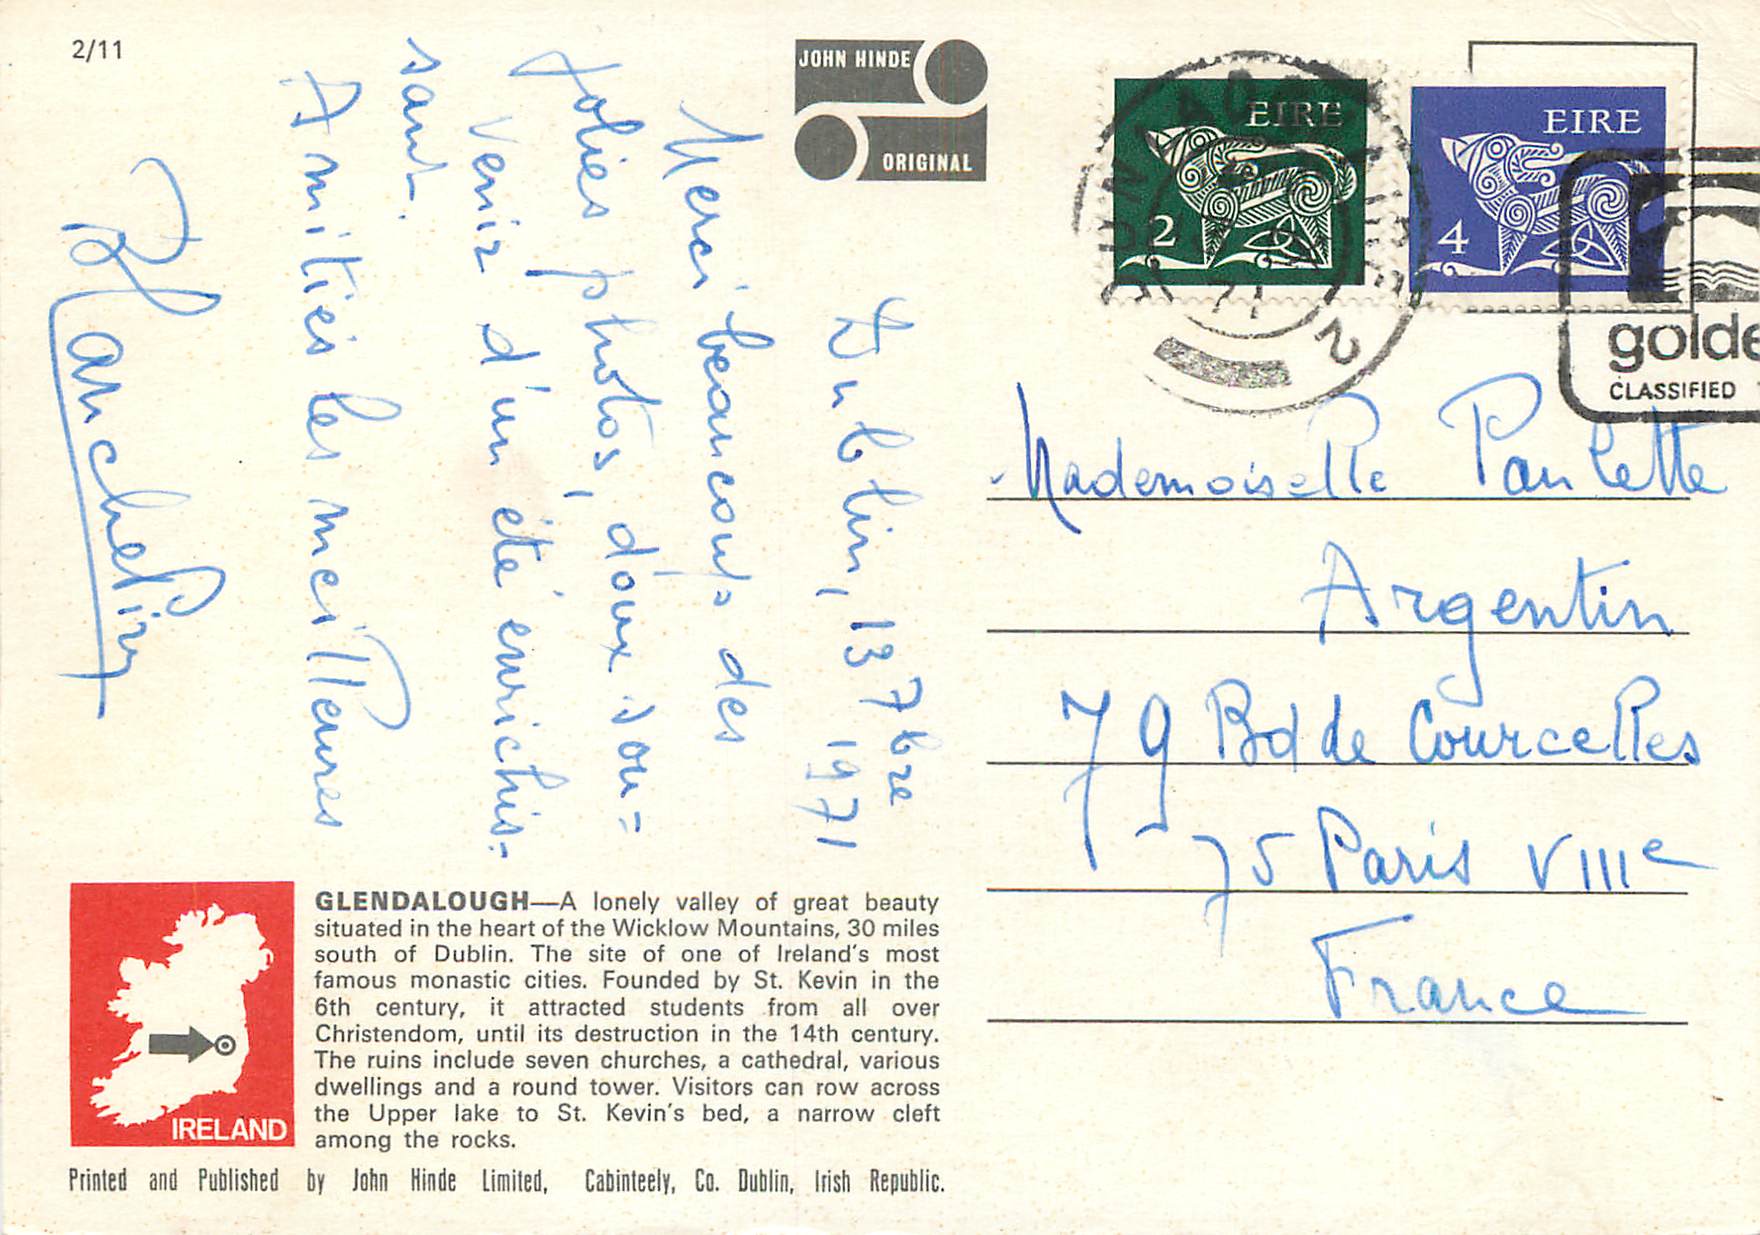 2/11
JOHN HINDE
ORIGINAL
EIRE
2
EIRE
4
golde
CLASSIFIED
Dublin, 13 7bre
1971
Merci beaucoup des
jolies photos, doux sou=
venir d'un été enrichis-
sant.
Amitiés les meilleures
Mademoiselle Paulette
Argentin
79 Bd de Courcelles
75 Paris VIIIe
France
IRELAND
GLENDALOUGH—A lonely valley of great beauty
situated in the heart of the Wicklow Mountains, 30 miles
south of Dublin. The site of one of Ireland's most
famous monastic cities. Founded by St. Kevin in the
6th century, it attracted students from all over
Christendom, until its destruction in the 14th century.
The ruins include seven churches, a cathedral, various
dwellings and a round tower. Visitors can row across
the Upper lake to St. Kevin's bed, a narrow cleft
among the rocks.
Printed and Published by John Hinde Limited, Cabinteely, Co. Dublin, Irish Republic.